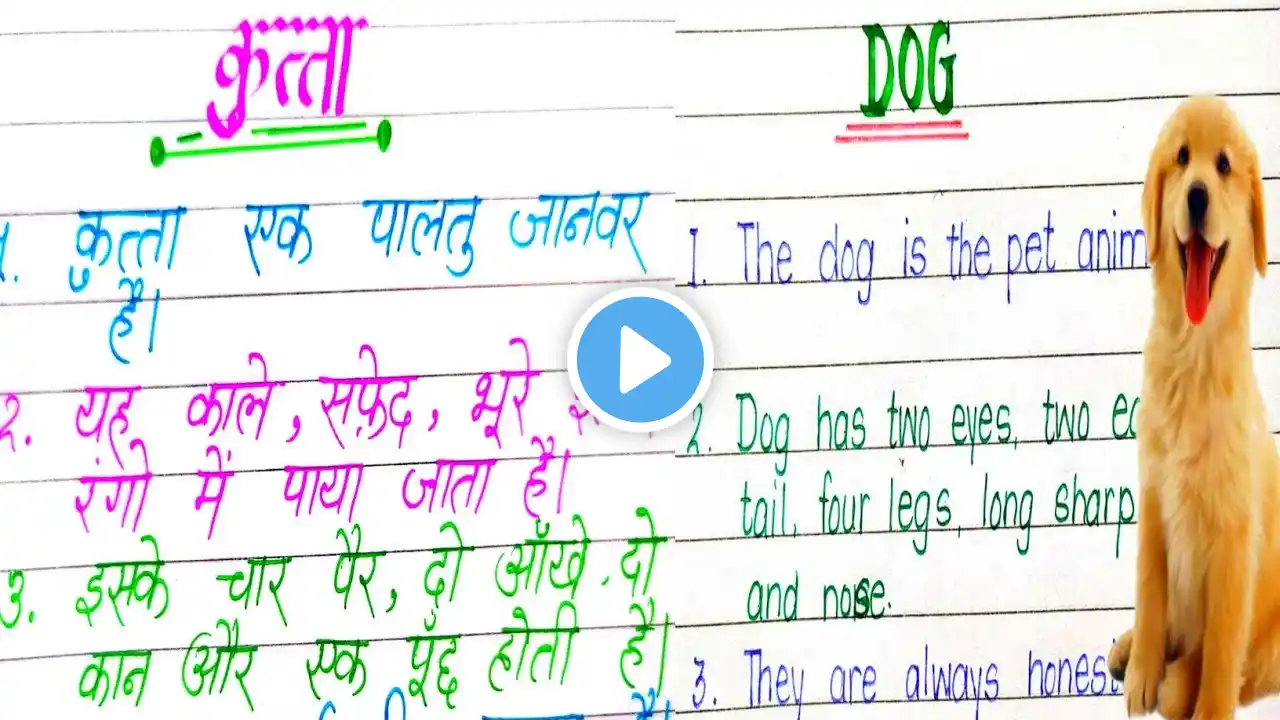 कुत्ता
1. कुत्ता एक पालतु जानवर
है।
२. यह काले, सफ़ेद, भूरे
रंगो में पाया जाता है।
३. इसके चार पैर, दो आँखे, दो
कान और एक पूँछ होती है।
DOG
1. The dog is the pet anim
2. Dog has two eyes, two
tail, four legs, long sharp
and nose.
3. They are always honest